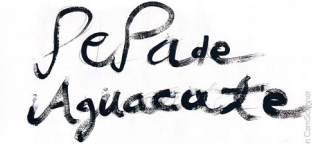 Pepa de
Aguacate